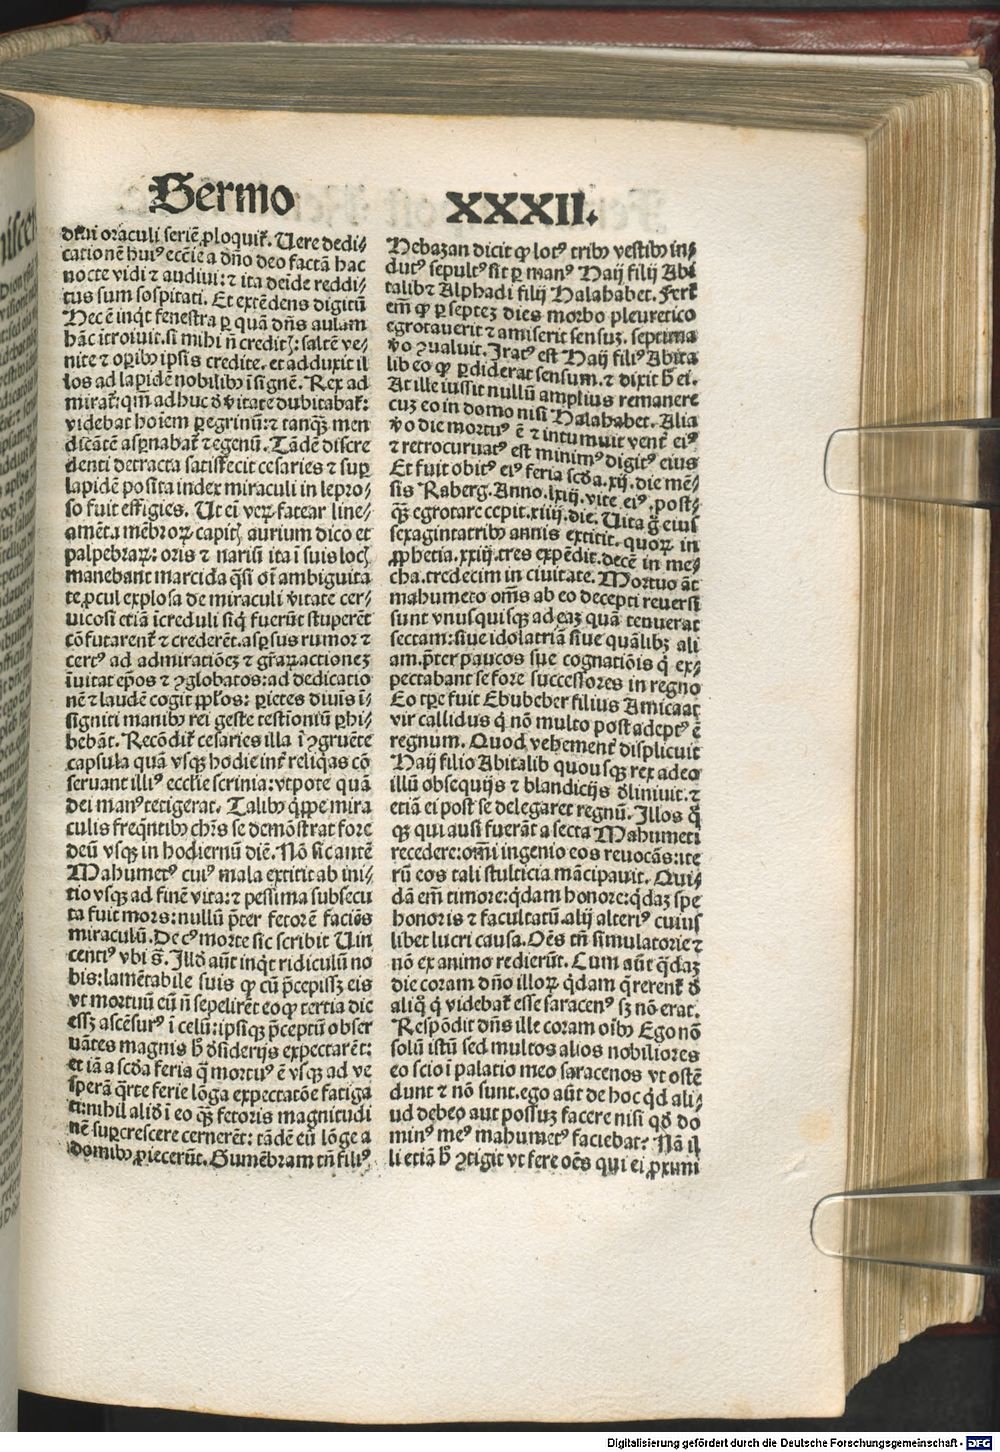 Sermo
XXXII.
dn̄i oraculi seriē ꝓloquit̃. Uere dedi⸗
cationē huiꝰ eccl̃ie a dño deo factā hac
nocte vidi ⁊ audiui: ⁊ ita deīde reddi⸗
tus sum sospitati. Et extēdens digitū
Hec ē inqt̃ fenestra ꝑ quā dñs aulam
hāc ītroiuit. si mihi ñ creditꝭ: saltē ve⸗
nite ⁊ oꝑibꝰ ipsis credite. et adduxit il
los ad lapidē nobilibꝰ īsignē. Rex ad
mirat̃: qm̃ adhuc ď vitate dubitabat̃:
videbat hoīem ꝑegrinū: ⁊ tanqꝫ men
dicātē asꝑnabat̃ ⁊ egenū. Tādē discre
denti detracta satisfecit cesaries ⁊ suꝑ
lapidē posita index miraculi in lepro⸗
so fuit effigies. Ut ei veꝝ fatear line⸗
amēt.ı mēbroꝝ capitꝭ aurium dico et
palpebraꝝ: oris ⁊ nariū ita ī suis locꝭ
manebant marcida q̃si oī ambiguita
te ꝓcul explosa de miraculi ṽitate cer⸗
vicosi etiā īcreduli siq̇ fuerūt stuperēt
cōfutarent̃ ⁊ crederēt. asꝑsus rumor ⁊
certꝰ ad admiratiōeꝫ ⁊ gr̃aꝝ actioneꝫ
īuitat ep̄os ⁊ ꝯglobatos: ad dedicatio
nē ⁊ laudē cogit pp̄los: ꝑietes diuīs ī⸗
signiti manibꝰ rei geste testīoniū ꝑhi⸗
bebāt. Recōdit̃ cesaries illa ī ꝯgruēte
capsula quā vsqꝫ hodie int̃ reliq̇as cō
seruant illiꝰ eccl̃ie scrinia: vtpote quā
dei manꝰ tetigerat. Talibꝰ q̇ppe mira
culis freq̄ntibꝰ chr̄s se demōstrat fore
deū vsqꝫ in hodiernū diē. Nō sic autē
Mahumetꝰ cuiꝰ mala extitit ab ini⸗
tio vsqꝫ ad finē vita: ⁊ pessima subsecu
ta fuit mors: nullū p̄ter fetorē faciēs
miraculū. De cꝰ morte sic scribit Uin
centiꝰ vbi s̄. Illď aūt inqt̃ ridiculū no
bis: lamētabile suis ꝙ cū p̄cepissꝫ eis
vt mortuū eū ñ sepelirēt eo ꝙ tertia die
essꝫ ascēsurꝰ ī celū: ipsiqꝫ p̄ceptū obser
uātes magnis ħ ďsiderijs expectarēt:
et iā a scďa feria q̄ mortuꝰ ē vsqꝫ ad ve
sperā q̄rte ferie lōga expectatōe fatiga
ti: nihil aliď ī eo qꝫ̄ fetoris magnitudi
nē suꝑcrescere cernerēt: tādē eū lōge a
domibꝰ ꝓiecerūt. Sumēbram tñ filiꝰ
Hebazan dicit ꝙ lotꝰ tribꝰ vestibꝰ in⸗
dutꝰ sepultꝰ sit ꝑ manꝰ Haij filij Abi
talib ⁊ Alphadi filij Halahabet. Fert̃
em̄ ꝙ ꝑ septeꝫ dies morbo pleuretico
egrotauerit ⁊ amiserit sensuꝫ. septima
ṽo ꝯualuit. Iratꝰ est Haij filiꝰ Abita
lib eo ꝙ ꝑdiderat sensum. ⁊ dixit ħ ei.
At ille iussit nullū amplius remanere
cuꝫ eo in domo nisi Halahabet. Alia
ṽo die mortuꝰ ē ⁊ intumuit vent̃ eiꝰ
⁊ retrocuruatꝰ est minimꝰ digitꝰ eius
Et fuit obitꝰ eiꝰ feria scďa. xij. die mē⸗
sis Raberg. Anno. lxiij. vite eiꝰ. post⸗
qꝫ̄ egrotare cepit. xiiij. die. Uita g̊ eius
sexagintatribꝰ annis extitit. quoꝝ in
ꝓphetia. xxiij. tres expēdit. decē in me⸗
cha. tredecim in ciuitate. Mortuo āt
mahumeto om̄s ab eo decepti reuersi
sunt vnusquisqꝫ ad eaꝫ quā tenuerat
sectam: siue idolatriā siue quālibꝫ ali
am. p̄ter paucos sue cognatiōis q̇ ex⸗
pectabant se fore successores in regno
Eo tp̄e fuit Ebubeber filius Amicaac
vir callidus q̇ nō multo post adeptꝰ ē
regnum. Quod vehement̃ displicuit
Haij filio Abitalib quousqꝫ rex adeo
illū obsequijs ⁊ blandicijs ďliniuit. ⁊
etiā ei post se delegaret regnū. Illos q̊
qꝫ qui ausi fuerāt a secta Mahumeti
recedere: omī ingenio eos reuocās: ite
rū eos tali stulticia mācipauit. Qui⸗
dā em̄ timore: q̇dam honore: q̇daꝫ spe
honoris ⁊ facultatū. alij alteriꝰ cuius
libet lucri causa. Oēs tñ simulatorie ⁊
nō ex animo redierūt. Cum aūt q̇daꝫ
die coram dño illoꝝ q̇dam q̄rerent̃ ď
aliq̊ q̇ videbat̃ esse saracenꝰ sꝫ nō erat.
Respōdit dñs ille coram oībꝰ Ego nō
solū istū sed multos alios nobiliores
eo scio ī palatio meo saracenos vt ostē
dunt ⁊ nō sunt. ego aūt de hoc q̇d ali⸗
ud debeo aut possuꝫ facere nisi qď do
minꝰ meꝰ mahumetꝰ faciebat? Nā il
li etiā ħ ꝯtigit vt fere oēs qui ei ꝓximi
Digitalisierung gefördert durch die Deutsche Forschungsgemeinschaft - DFG